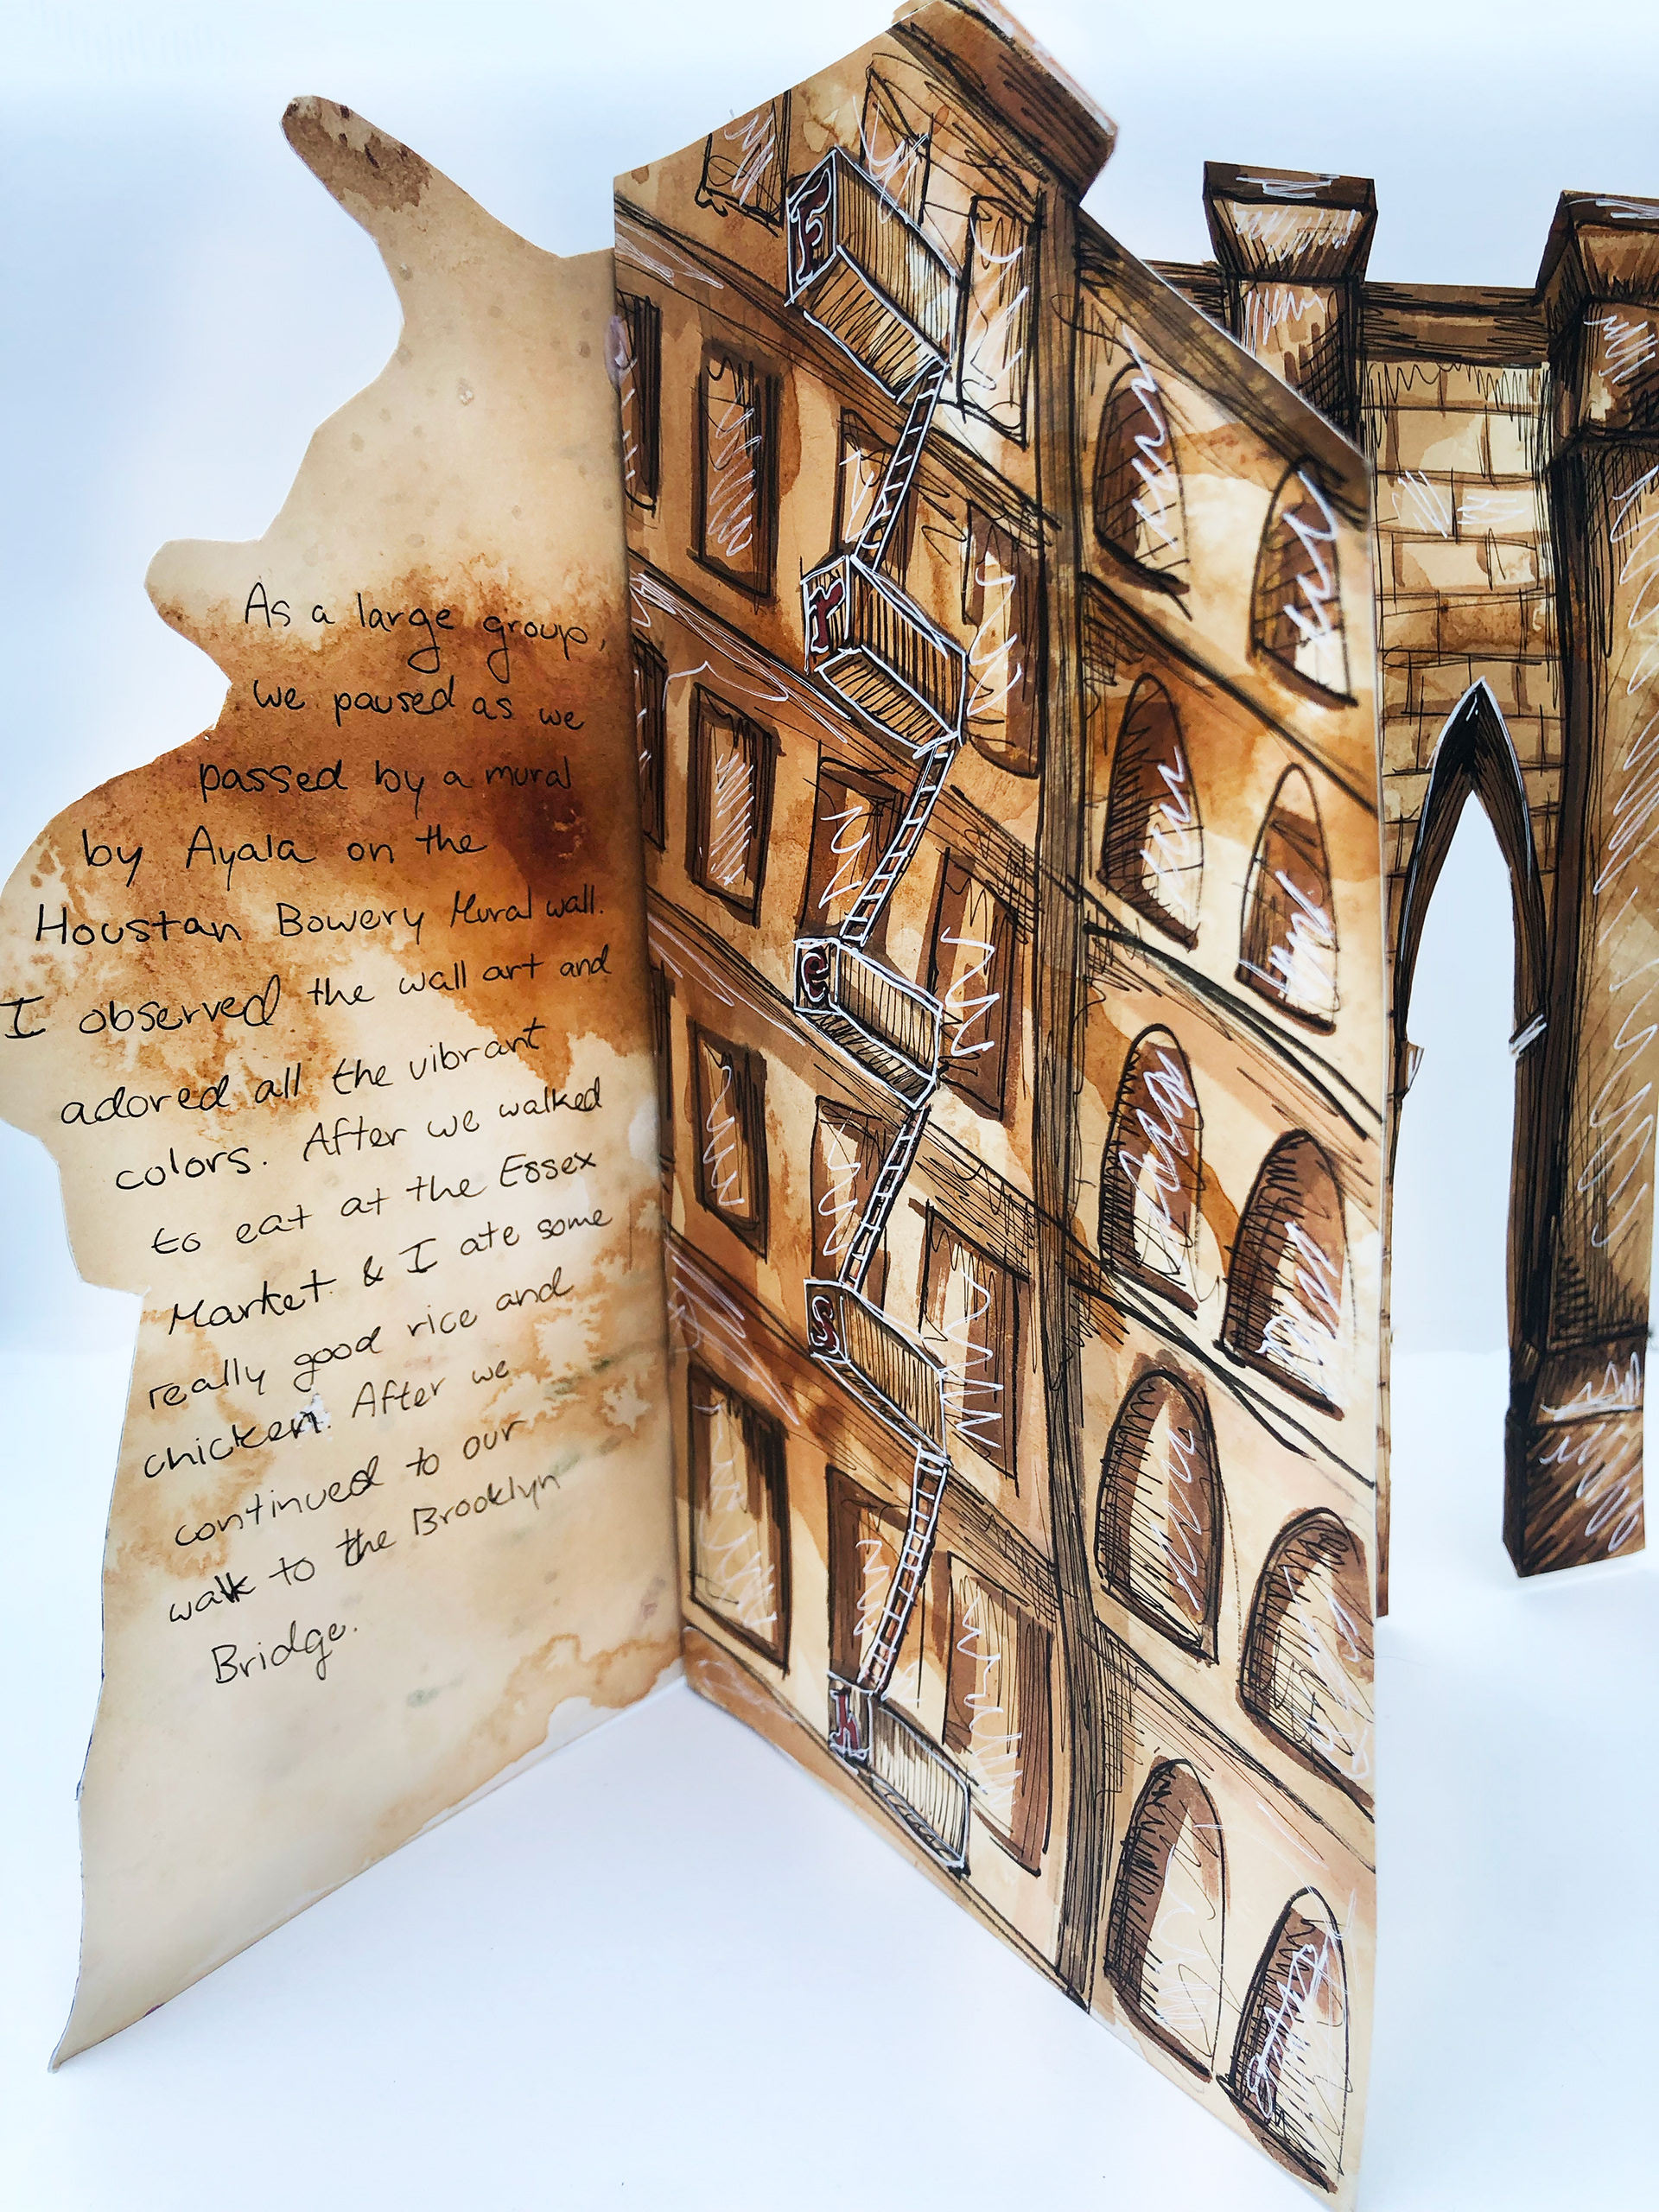 As a large group,
we paused as we
passed by a mural
by Ayala on the
Houstan Bowery Mural wall.
I observed the wall art and
adored all the vibrant
colors. After we walked
to eat at the Essex
Market & I ate some
really good rice and
chicken. After we
continued to our
walk to the Brooklyn
Bridge.
F
r
e
s
h